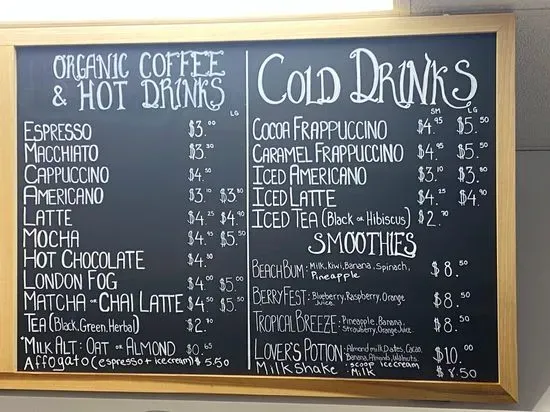 ORGANIC COFFEE
& HOT DRINKS
LG
ESPRESSO $3.00
MACCHIATO $3.50
CAPPUCCINO $4.50
AMERICANO $3.10 $3.80
LATTE $4.25 $4.90
MOCHA $4.95 $5.50
HOT CHOCOLATE $4.50
LONDON FOG $4.00 $5.00
MATCHA OR CHAI LATTE $4.50 $5.50
TEA (Black, Green, Herbal) $2.90
*MILK ALT: OAT OR ALMOND $0.65
Affogato (espresso + icecream) $5.50
COLD DRINKS
SM LG
COCOA FRAPPUCCINO $4.95 $5.50
CARAMEL FRAPPUCCINO $4.95 $5.50
ICED AMERICANO $3.10 $3.80
ICED LATTE $4.25 $4.90
ICED TEA (BLACK OR HIBISCUS) $2.90
SMOOTHIES
BEACH BUM: Milk, Kiwi, Banana, Spinach, $8.50
Pineapple
BERRY FEST: Blueberry, Raspberry, Orange $8.50
Juice.
TROPICAL BREEZE: Pineapple, Banana, $8.50
Strawberry, Orange Juice.
LOVER'S POTION: Almond milk, Dates, Cacao, $10.00
Banana, Almonds, Walnuts
Milkshake: scoop icecream $8.50
Milk